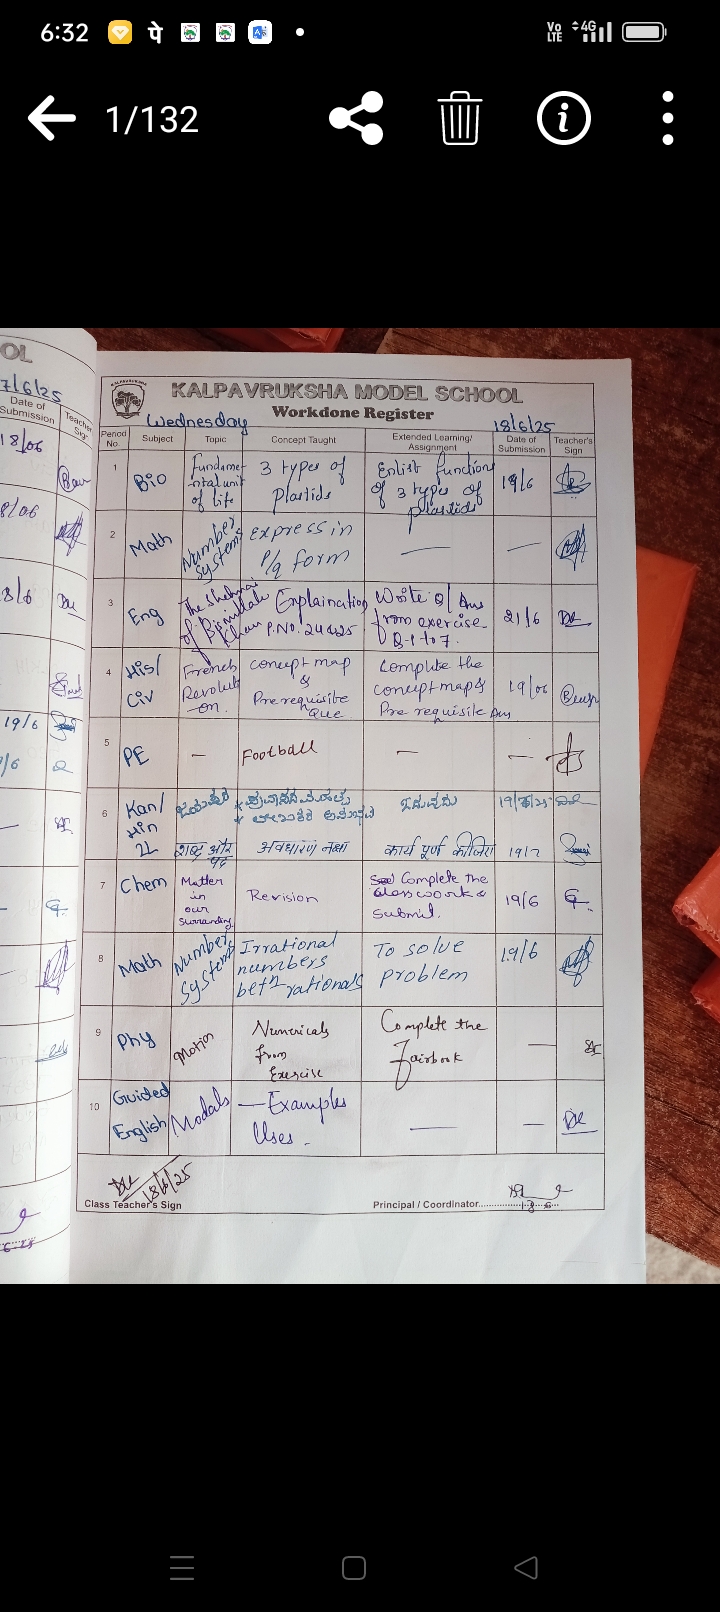 6:32
Vo LTE 4G
1/132
OL
7/6/25
Date of Submission
Teacher Sign
18/06
8/06
8/6
19/6
/6
KALPAVRUKSHA
KALPAVRUKSHA MODEL SCHOOL
Workdone Register
Wednesday 18/6/25
Period No. Subject Topic Concept Taught Extended Learning/ Assignment Date of Submission Teacher's Sign
1 Bio Fundame -ntal unit of life 3 types of Plastids Enlist function of 3 types of plastids 19/6
2 Math Number Systems express in P/q form — —
3 Eng The Shehnai of Bismillah Khan Explaination P.NO. 24&25 Write Q/Ans from exercise Q-1 to 7. 21/6
4 His/ Civ French Revoluti -on. concept map & Prerequisite Que Complete the concept map & Pre requisite Ans 19/06
5 PE — Football — —
6 Kan/ Hin 2L ಪ್ರವಾಸದ ಮಹತ್ವ ಲೇಖಕರ ಅನುಭವ ಓದುವುದು
शब्द और पद अवधारणा नक्शा कार्य पूर्ण कीजिए 19/7
7 Chem Matter in our surranding Revision Complete the classwork & submit. 19/6
8 Math Number Systems Irrational numbers betn rationals To solve problem 19/6
9 Phy Motion Numericals from Exercise Complete the Fairbook —
10 Guided English Modals — Examples Uses. — —
18/6/25
Class Teacher's Sign Principal / Coordinator
18 6